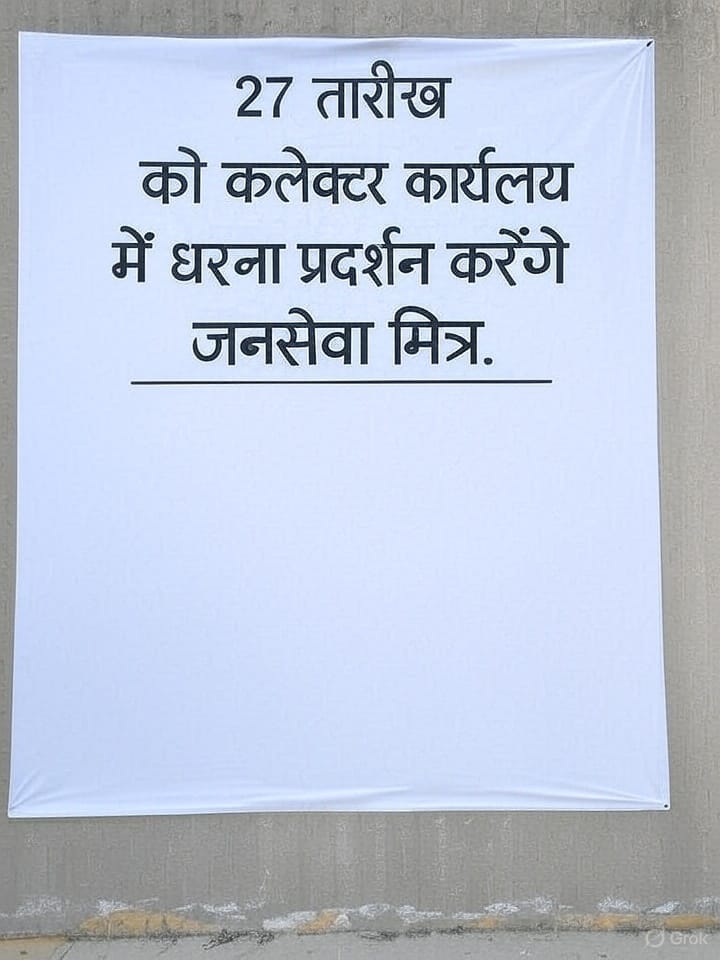 27 तारीख
को कलेक्टर कार्यलय
में धरना प्रदर्शन करेंगे
जनसेवा मित्र.
Grok